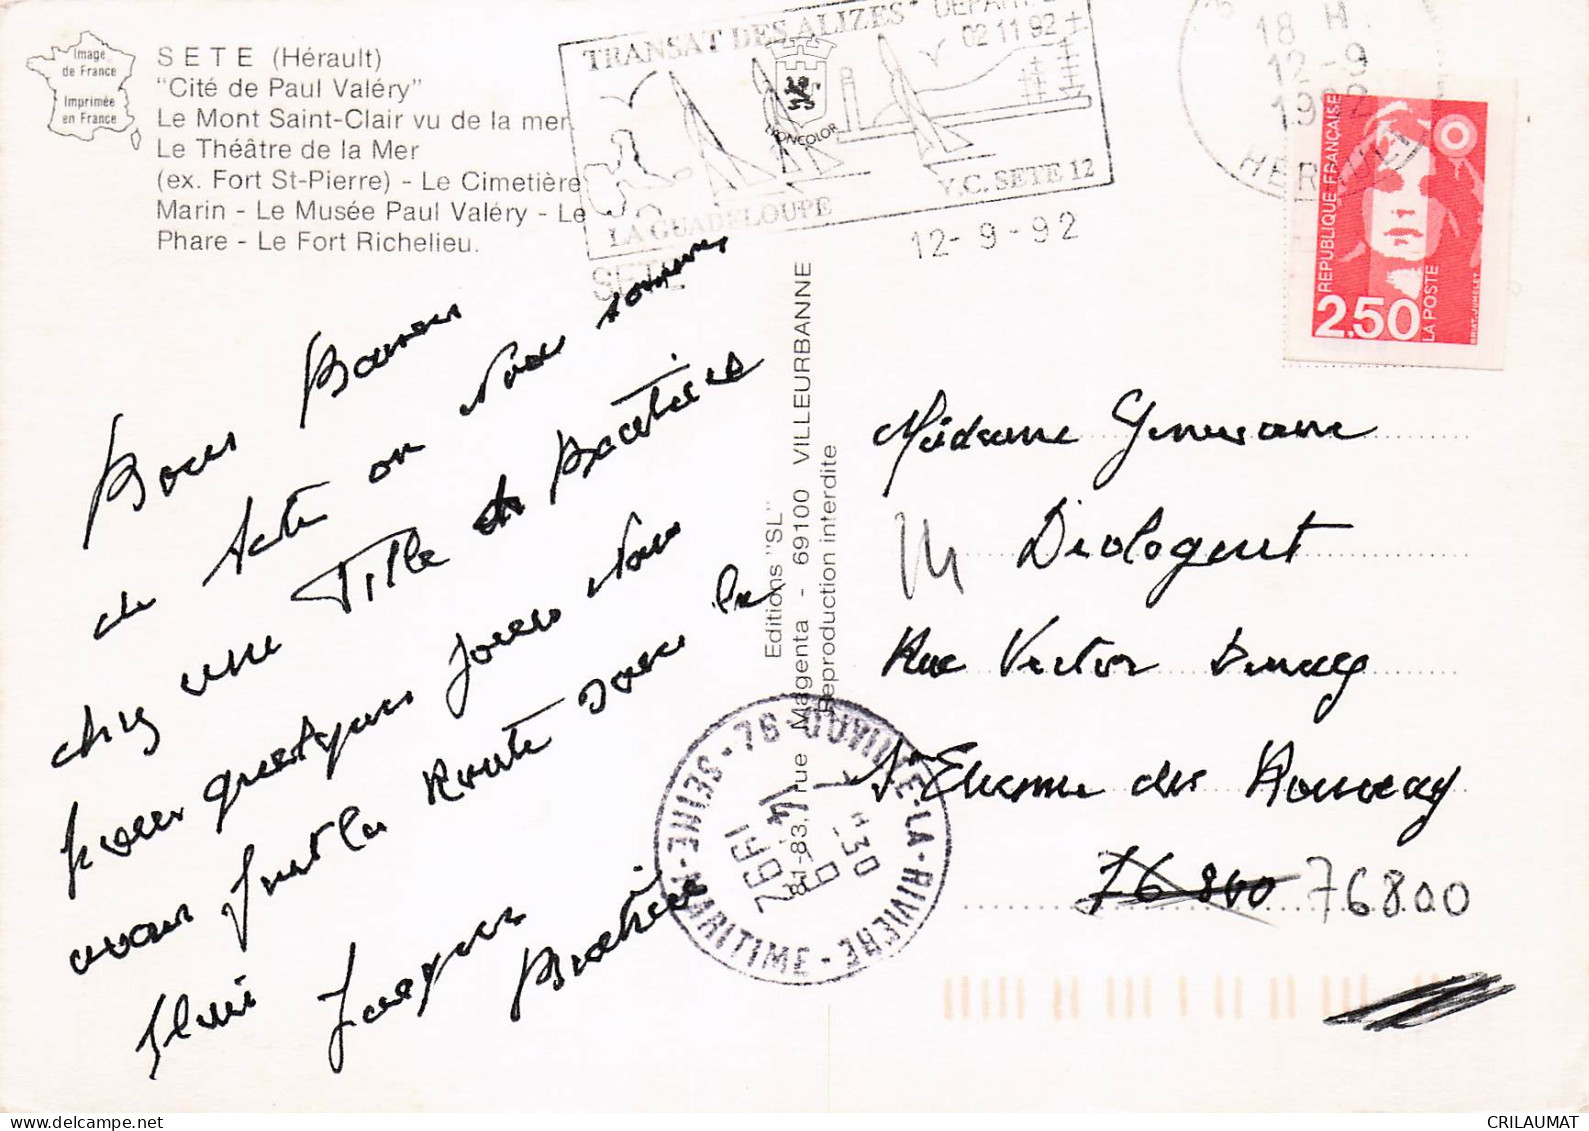 Image
de France
Imprimée
en France
SETE (Hérault)
"Cité de Paul Valéry"
Le Mont Saint-Clair vu de la mer
Le Théâtre de la Mer
(ex. Fort St-Pierre) - Le Cimetière
Marin - Le Musée Paul Valéry - Le
Phare - Le Fort Richelieu.
TRANSAT DES ALIZES
02 11 92
LYONCOLOR
LA GUADELOUPE
Y.C. SETE 12
SETE
12-9-92
18 H
12-9
1992
HERAULT
REPUBLIQUE FRANÇAISE
2,50
LA POSTE
BRIAT-JUMELET
Bons Baisers
de Sète ou nous sommes
chez une fille de Béatrice
pour quelques jours nous
avons fait la Route sous la
pluie Jacques
Béatrice
Editions "SL"
81-83, rue Magenta - 69100 VILLEURBANNE
Reproduction interdite
76 OUVILLE-LA-RIVIERE
SEINE-MARITIME
7 H 30
14 - 9
1992
Madame
Rue Victor
St Etienne du Rouvray
76 800 76800
CRILAUMAT